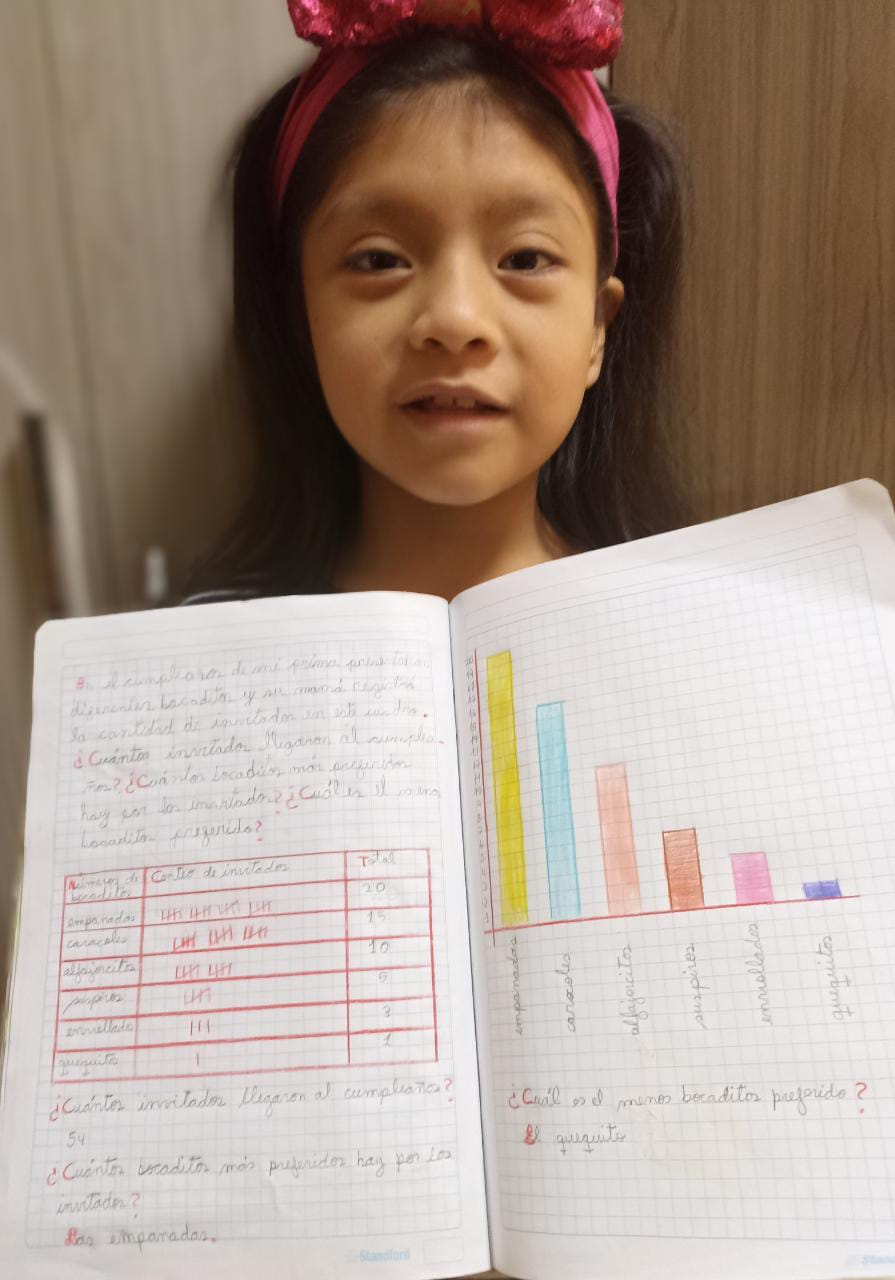 En el cumpleaños de mi prima presentaron
diferentes bocaditos y su mamá registró
la cantidad de invitados en este cuadro.
¿Cuántos invitados llegaron al cumplea-
ños? ¿Cuántos bocaditos más preferidos
hay por los invitados? ¿Cuál es el menos
bocaditos preferido?
Números de bocaditos Conteo de invitados Total
empanadas 20
caracoles 15
alfajorcitos 10
suspiros 5
enrrollado 3
quequito 1
¿Cuántos invitados llegaron al cumpleaños?
54
¿Cuántos bocaditos más preferidos hay por los
invitados?
Las empanadas.
Standford
empanadas
caracoles
alfajorcitos
suspiros
enrrollados
quequitos
¿Cuál es el menos bocaditos preferido?
El quequito